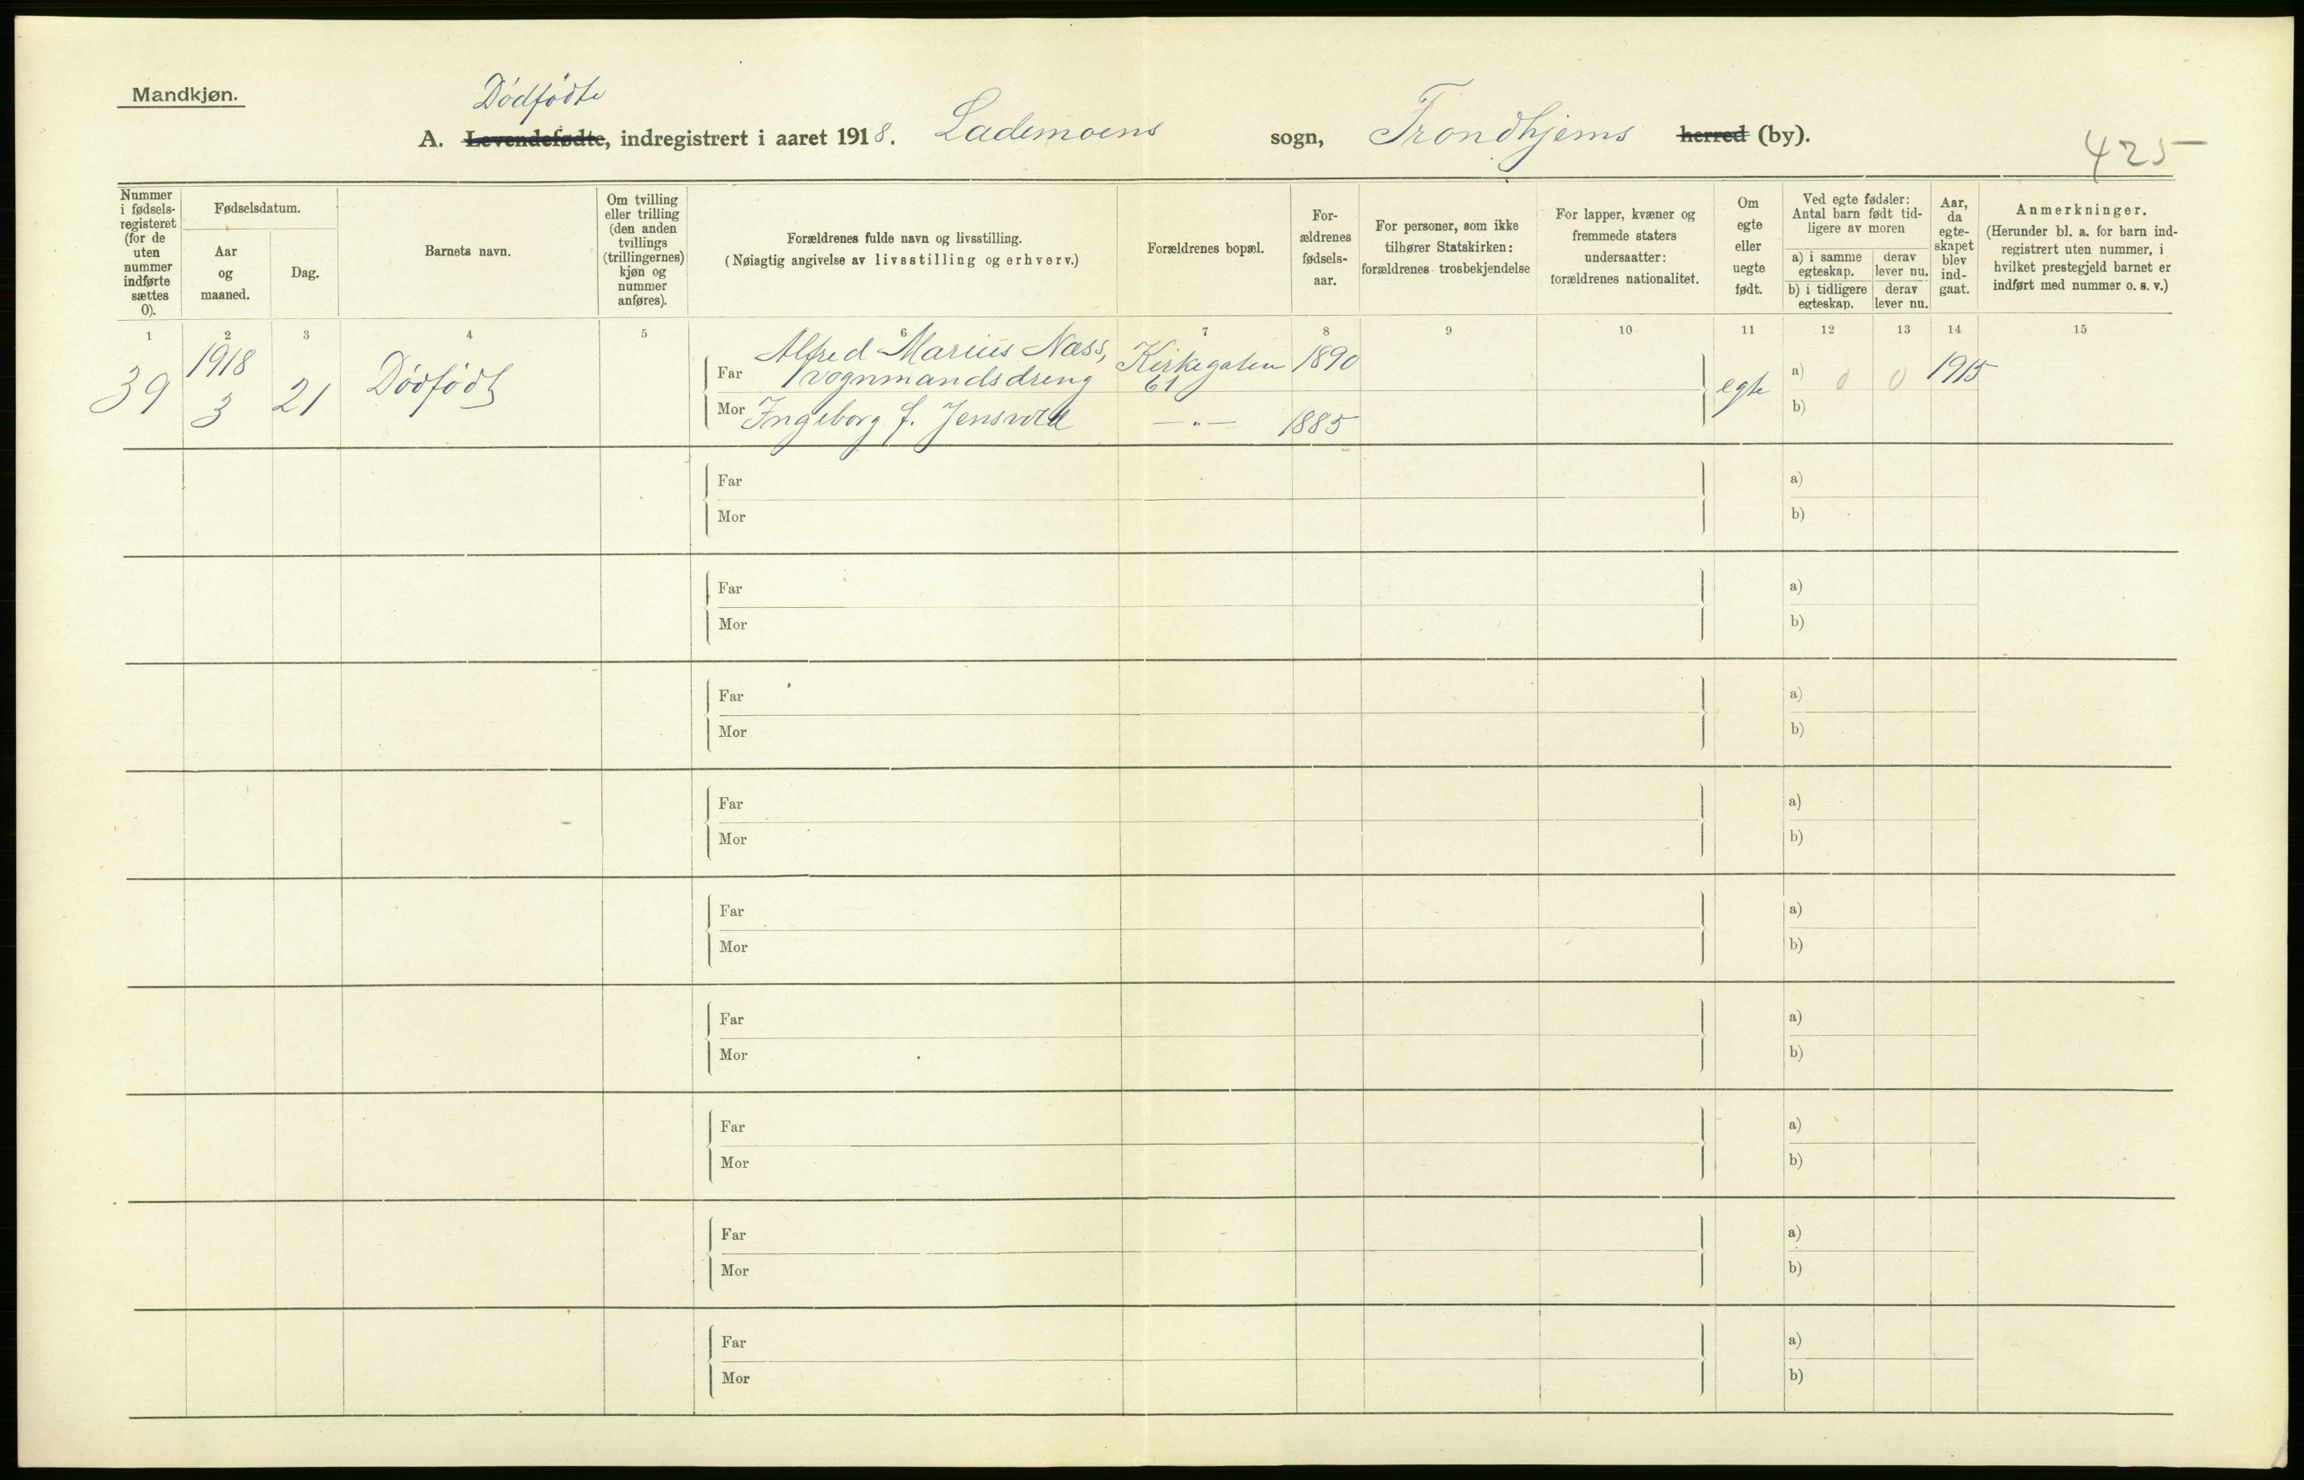 Mandkjøn.
Dødfødte
A. Levendefødte, indregistrert i aaret 1918. Lademoens sogn, Trondhjems herred (by).
425
Nummer
i fødsels-
registeret
(for de
uten
nummer
indførte
sættes
0).
Fødselsdatum.
Aar
og
maaned.
Dag.
Barnets navn.
Om tvilling
eller trilling
(den anden
tvillings
(trillingernes)
kjøn og
nummer
anføres).
Forældrenes fulde navn og livsstilling.
(Nøiagtig angivelse av livsstilling og erhverv.)
Forældrenes bopæl.
For-
ældrenes
fødsels-
aar.
For personer, som ikke
tilhører Statskirken:
forældrenes trosbekjendelse
For lapper, kvæner og
fremmede staters
undersaatter:
forældrenes nationalitet.
Om
egte
eller
uegte
født.
Ved egte fødsler:
Antal barn født tid-
ligere av moren
a) i samme
egteskap.
derav
lever nu.
b) i tidligere
egteskap.
derav
lever nu.
Aar,
da
egte-
skapet
blev
ind-
gaat.
Anmerkninger.
(Herunder bl. a. for barn ind-
registrert uten nummer, i
hvilket prestegjeld barnet er
indført med nummer o. s. v.)
1 2 3 4 5 6 7 8 9 10 11 12 13 14 15
39 1918 3 21 Dødfødt
Far Alfred Marius Næss, Kirkegaten 1890
vognmandsdreng 61
Mor Ingeborg f. Jensvold —"— 1885
egte a) 0 0 1915
b)
Far a)
Mor b)
Far a)
Mor b)
Far a)
Mor b)
Far a)
Mor b)
Far a)
Mor b)
Far a)
Mor b)
Far a)
Mor b)
Far a)
Mor b)
Far a)
Mor b)